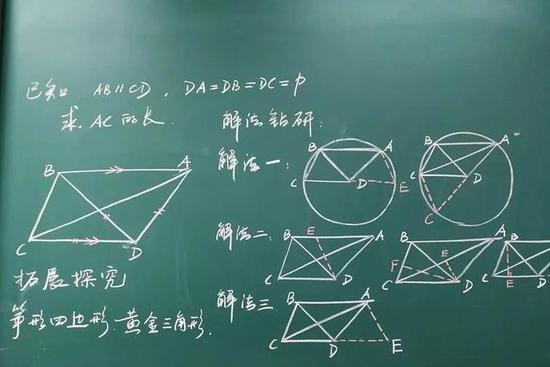 已知 AB∥CD, DA=DB=DC=p
求 AC 的长.
解法钻研:
解法一:
B A C D E
B A C D C
B A C D
解法二:
B E A C D
B A F E C D
B C E
拓展探究
筝形四边形 黄金三角形.
解法三
B A C D E